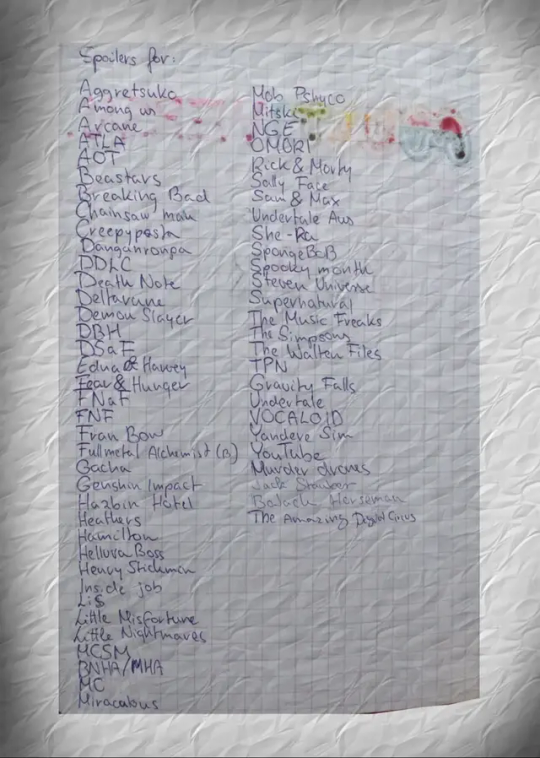 Spoilers for:
Aggretsuko
Among us
Arcane
ATLA
AOT
Beastars
Breaking Bad
Chainsaw man
Creepypasta
Danganronpa
DDLC
Death Note
Deltarune
Demon Slayer
DBH
DSaF
Edna & Harvey
Fear & Hunger
FNaF
FNF
Fran Bow
Fullmetal Alchemist (B)
Gacha
Genshin Impact
Hazbin Hotel
Heathers
Hamilton
Helluva Boss
Henry Stickman
Inside job
LiS
Little Misfortune
Little Nightmares
MCSM
BNHA/MHA
MC
Miraculous
Mob Pshyco
Mitski
NGE
OMORI
Rick & Morty
Sally Face
Sam & Max
Undertale Aus
She-Ra
SpongeBoB
Spooky month
Steven Universe
Supernatural
The Music Freaks
The Simpsons
The Walten Files
TPN
Gravity Falls
Undertale
VOCALOID
Yandere Sim
YouTube
Murder drones
Jack Stauber
Bojack Horseman
The Amazing Digital Circus